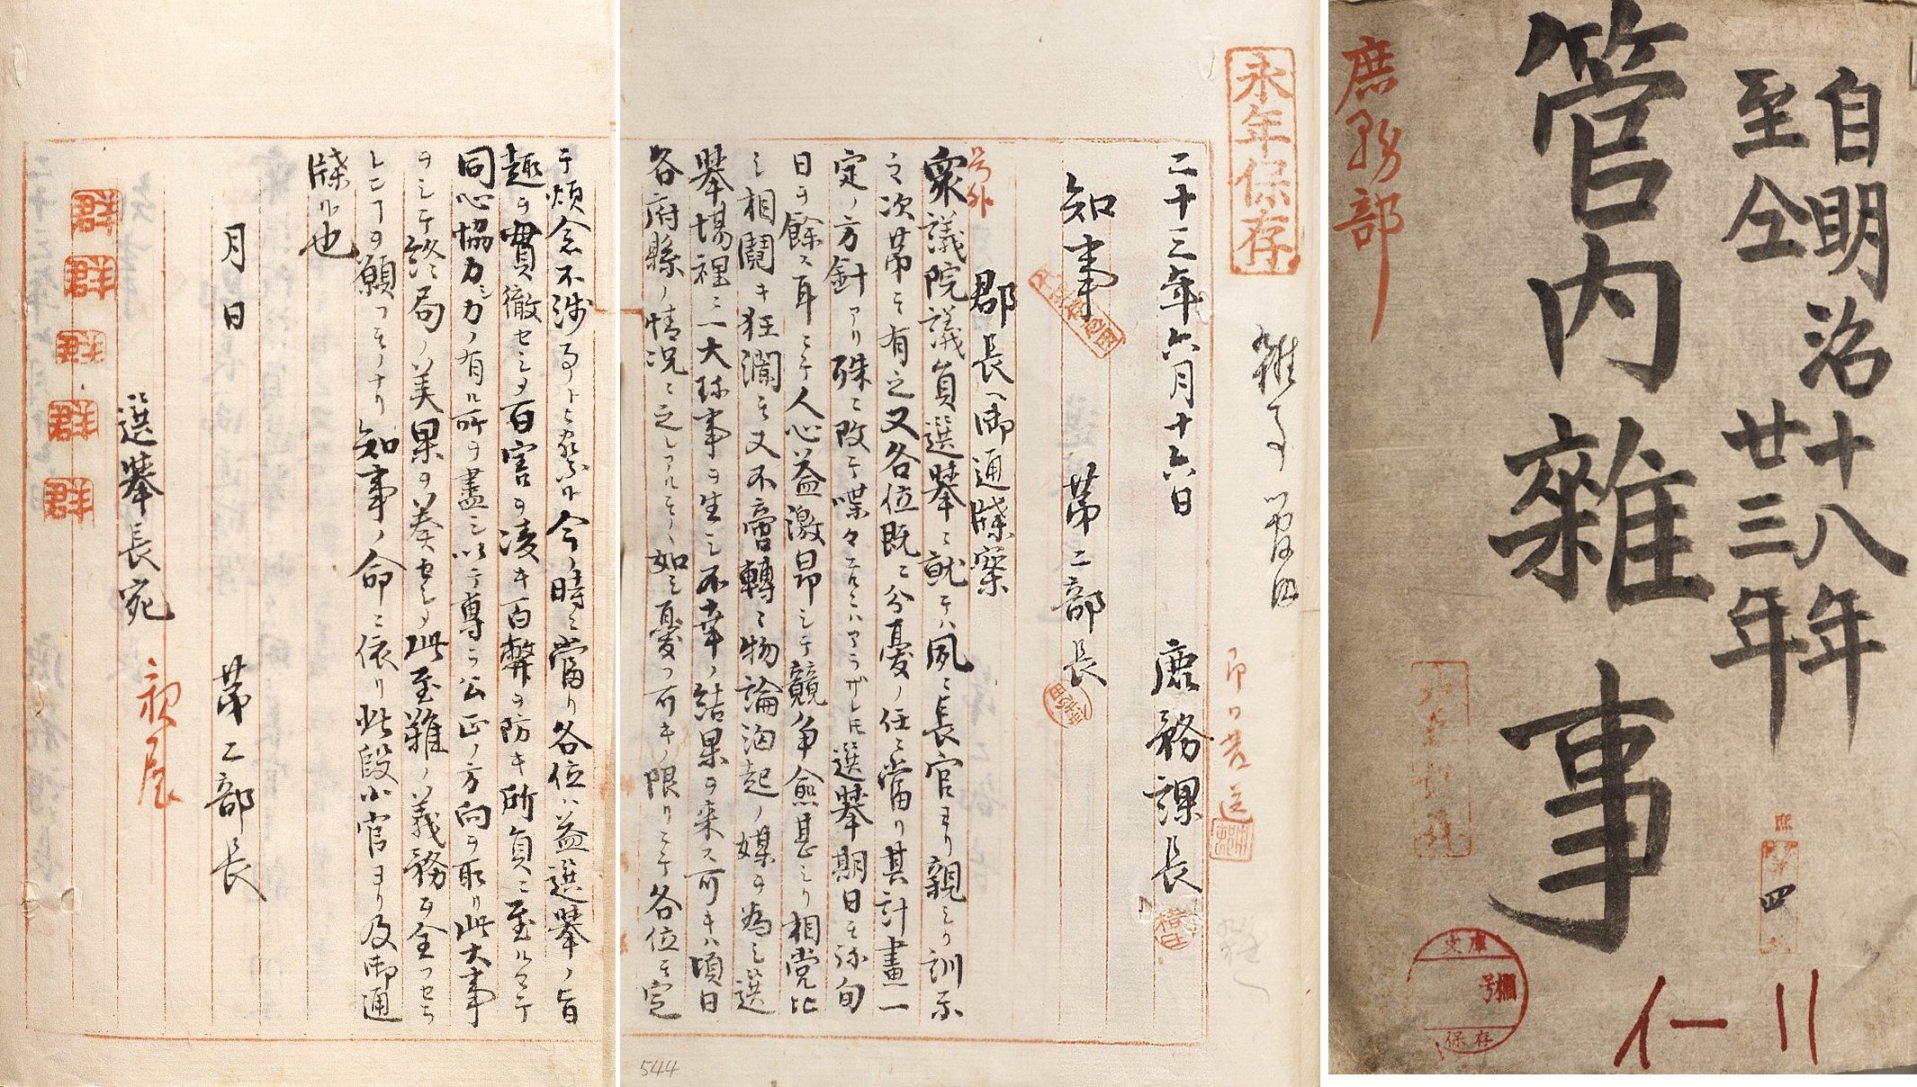 自明治十八年
至仝廿三年
管内雜事
庶務部
四
文庫
号
保存
イー11
永年保存
二十三年六月十六日
庶務課長
知事
第二部長
郡長ヘ御通牒案
号外
衆議院議員選挙ニ就テハ夙ニ長官ヨリ親シク訓示
之次第モ有之又各位既ニ分憂ノ任ニ當リ其計畫一
定ノ方針アリ殊ニ改テ喋々スルハアラザレトモ選挙期日モ弥旬
日ヲ餘ス耳ニテ人心益激昂シテ競争愈甚シク相党比
シ相鬩キ狂瀾モ又不啻轉シ物論洶起ノ媒ヲ為シ選
挙場裡ニ一大珎事ヲ生シ不幸ノ結果ヲ来ス可キハ頃日
各府縣ノ情況ニ之レアルモノヽ如シ憂フ可キノ限リニテ各位モ定
テ煩念不渉事ト存候ヘ今ノ時ニ當リ各位ハ益選挙ノ旨
趣ヲ貫徹セシメ百害ヲ凌キ百弊ヲ防キ所負ニ至ルマテ
同心協力シ力ノ有ル所ヲ盡シ以テ尊ラ公正ノ方向ヲ取リ此大事
ヲシテ終局ノ美果ヲ奏セシメ此至難ノ義務ヲ全フセラ
レンコヲ願フモノナリ知事ノ命ニ依リ此段小官ヨリ及御通
牒候也
月日
第二部長
選挙長宛
親展
群
群
群
群
群
544